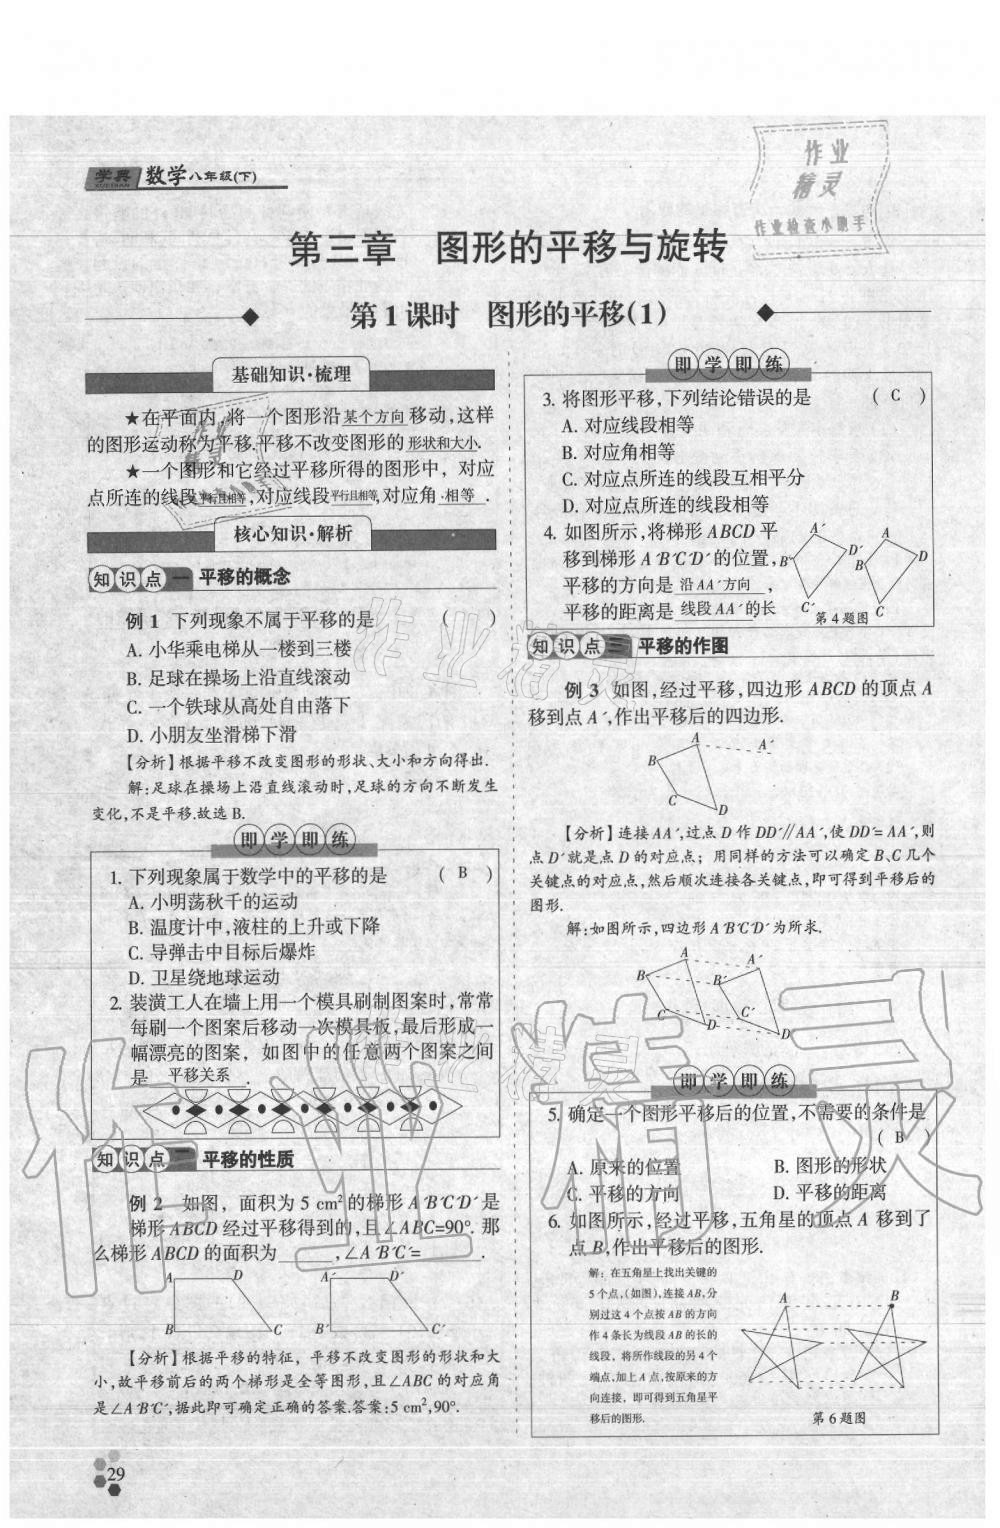 学典
XUEDIAN
数学八年级(下)
作业
精灵
作业检查小助手
第三章 图形的平移与旋转
第1课时 图形的平移(1)
基础知识·梳理
★在平面内,将一个图形沿某个方向移动,这样
的图形运动称为平移.平移不改变图形的形状和大小.
★一个图形和它经过平移所得的图形中，对应
点所连的线段平行且相等,对应线段平行且相等,对应角相等.
核心知识·解析
知识点一 平移的概念
例1 下列现象不属于平移的是 ( )
A. 小华乘电梯从一楼到三楼
B. 足球在操场上沿直线滚动
C. 一个铁球从高处自由落下
D. 小朋友坐滑梯下滑
【分析】根据平移不改变图形的形状、大小和方向得出.
解:足球在操场上沿直线滚动时,足球的方向不断发生
变化,不是平移.故选B.
即学即练
1. 下列现象属于数学中的平移的是 ( B )
A. 小明荡秋千的运动
B. 温度计中,液柱的上升或下降
C. 导弹击中目标后爆炸
D. 卫星绕地球运动
2. 装潢工人在墙上用一个模具刷制图案时,常常
每刷一个图案后移动一次模具板,最后形成一
幅漂亮的图案，如图中的任意两个图案之间
是 平移关系 .
知识点二 平移的性质
例2 如图，面积为5 cm²的梯形A′B′C′D′是
梯形ABCD经过平移得到的,且∠ABC=90°.那
么梯形ABCD的面积为 ,∠A′B′C′= .
A D A′ D′
B C B′ C′
【分析】根据平移的特征，平移不改变图形的形状和大
小,故平移前后的两个梯形是全等图形,且∠ABC的对应角
是∠A′B′C′,据此即可确定正确的答案.答案:5 cm²,90°.
29
即学即练
3. 将图形平移,下列结论错误的是 ( C )
A. 对应线段相等
B. 对应角相等
C. 对应点所连的线段互相平分
D. 对应点所连的线段相等
4. 如图所示,将梯形ABCD平
移到梯形A′B′C′D′的位置,
平移的方向是 沿AA′方向 ,
平移的距离是 线段AA′的长
A′ A
B′ D′ B D
C′ C
第4题图
知识点三 平移的作图
例3 如图,经过平移,四边形ABCD的顶点A
移到点A′,作出平移后的四边形.
A A′
B
C D
【分析】连接AA′,过点D作DD′∥AA′,使DD′=AA′,则
点D′就是点D的对应点；用同样的方法可以确定B、C几个
关键点的对应点,然后顺次连接各关键点,即可得到平移后的
图形.
解:如图所示,四边形A′B′C′D′为所求.
A A′
B B′
C C′
D D′
即学即练
5. 确定一个图形平移后的位置,不需要的条件是
( B )
A. 原来的位置 B. 图形的形状
C. 平移的方向 D. 平移的距离
6. 如图所示,经过平移,五角星的顶点A移到了
点B,作出平移后的图形.
解：在五角星上找出关键的
5个点,(如图),连接AB,分
别过这4个点按AB的方向
作4条长为线段AB的长的
线段，将所作线段的另4个
端点,加上A点,按原来的方
向连接，即可得到五角星平
移后的图形.
A B
第6题图
作业精灵
作业精灵
作业精灵